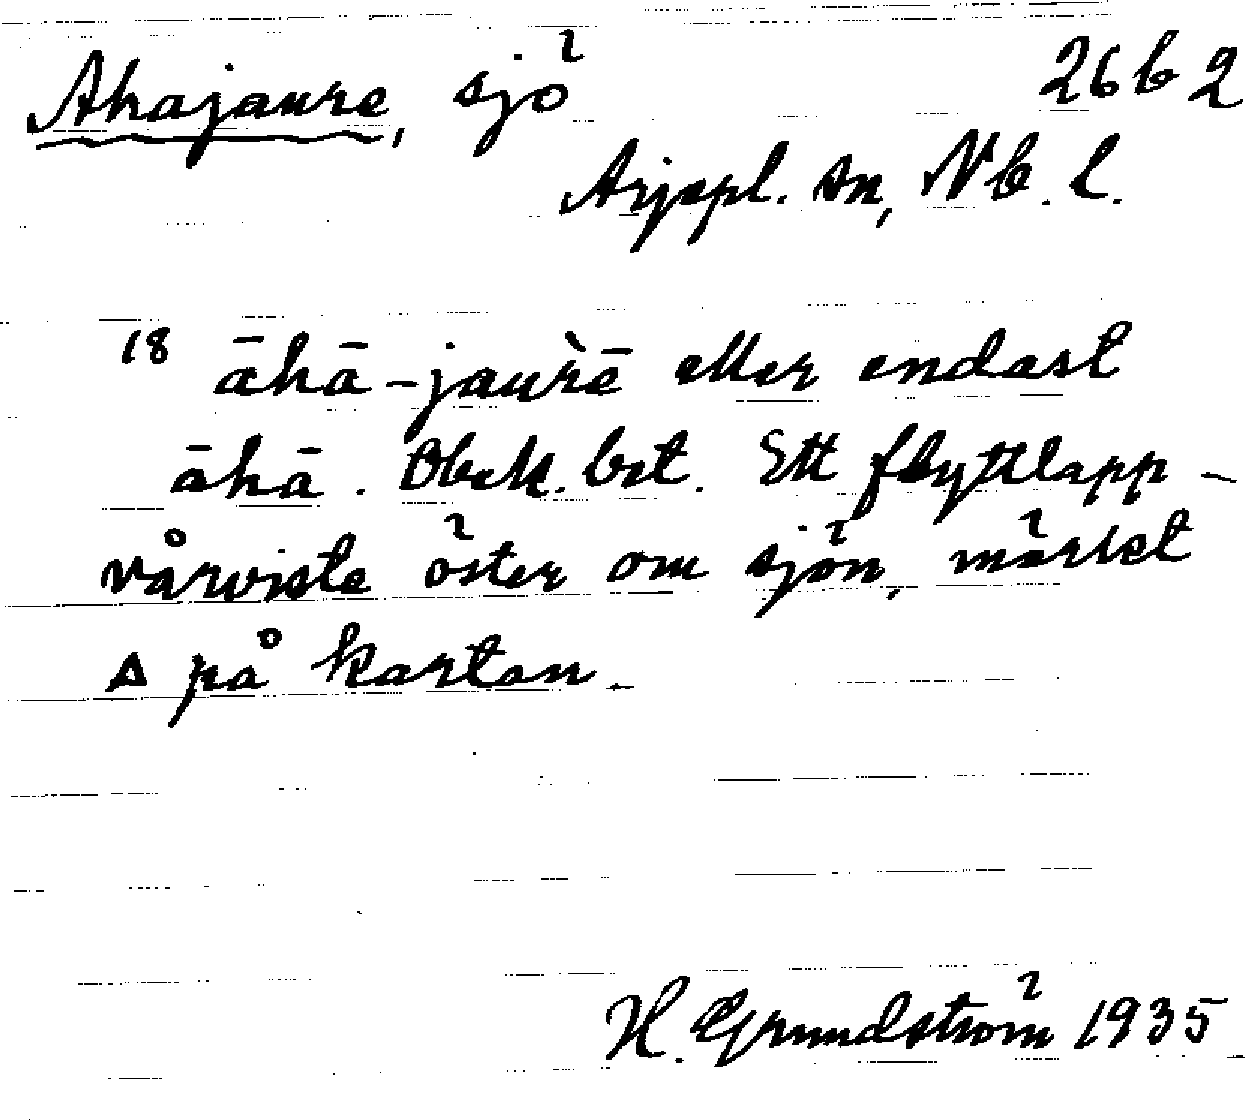 Ahajaure, sjö 26 b 2
Arjepl. sn, Nb. l.
18 āhā-jaùrē eller endast
āhā. Obek. bet. Ett flyttlapp-
vårviste öster om sjön, märket
Δ på kartan.
H. Grundström 1935